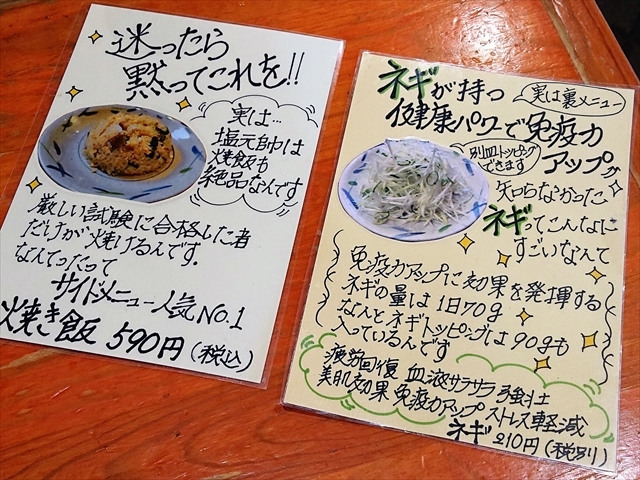 迷ったら
黙ってこれを!!
実は…
塩元帥は
焼飯も
絶品なんです
厳しい試験に合格した者
だけが焼けるんです。
なんてったって
サイドメニュー人気No.1
焼き飯 590円(税込)
ネギが持つ
実は裏メニュー
健康パワーで免疫力
アップ
別皿トッピング
できます
知らなかった
ネギってこんなに
すごいなんて
免疫力アップに効果を発揮する
ネギの量は1日70g
なんとネギトッピングは90gも
入っているんです
疲労回復 血液サラサラ 強壮
美肌効果 免疫力アップ ストレス軽減
ネギ 210円(税別)